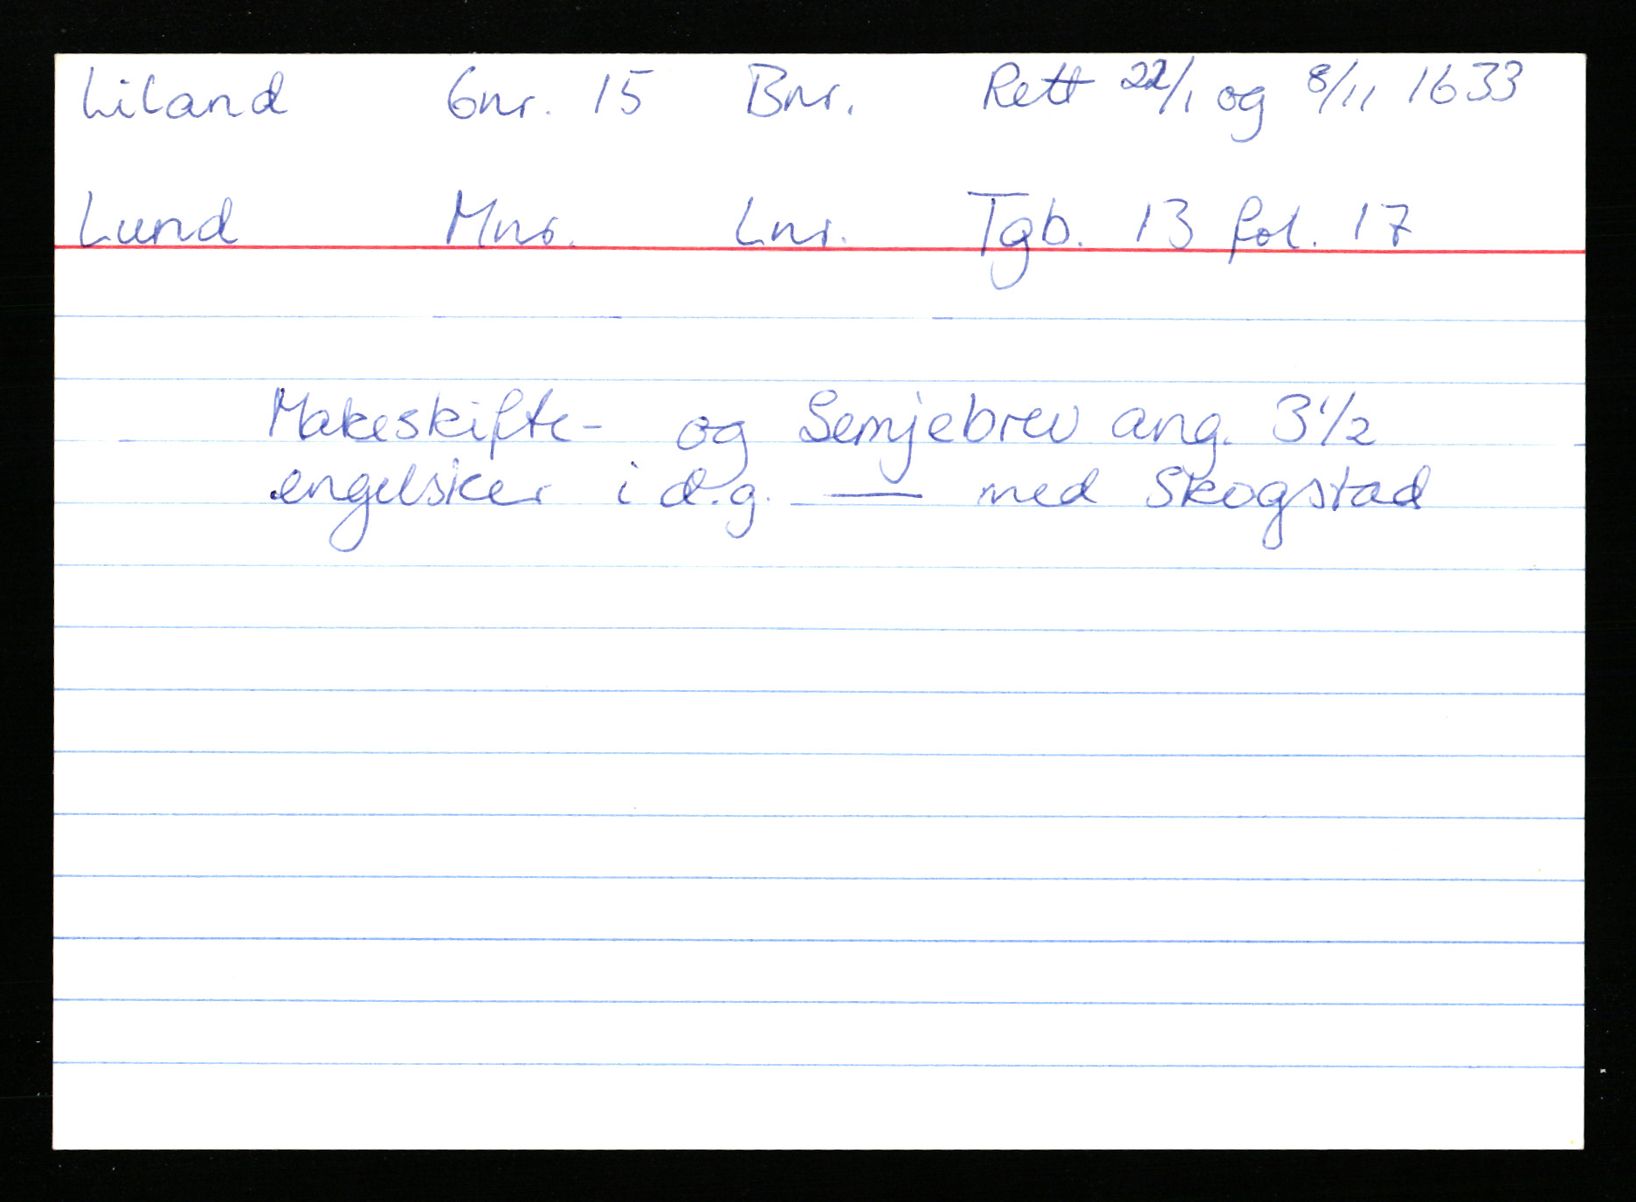 Liland Gnr. 15 Bnr. Rett 22/1 og 8/11 1633
Lund Mnr. Lnr. Tgb. 13 fol. 17
Makeskifte- og Semjebrev ang. 3 1/2
engelsker i d.g. — med Skogstad